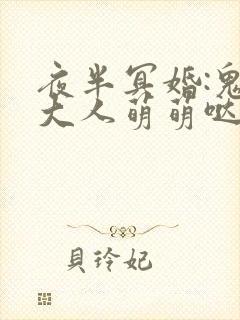 夜半冥婚:鬼
大人萌萌哒
貝玲妃